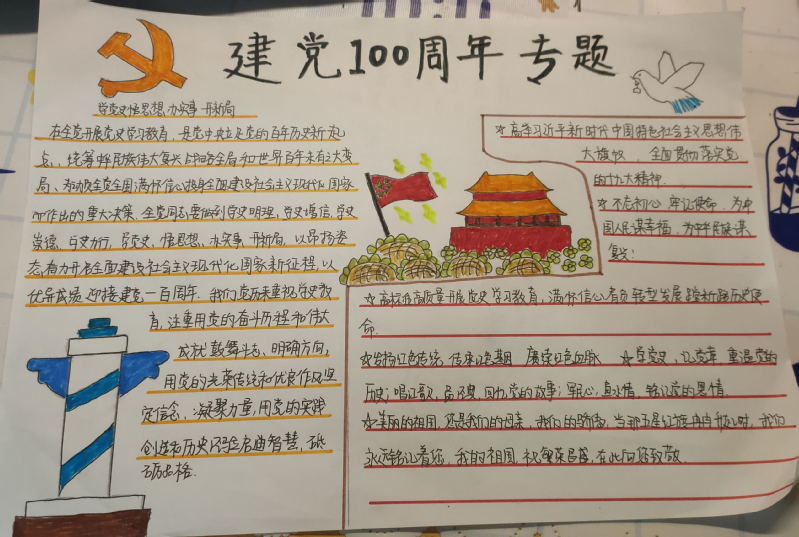 建党100周年专题
学党史 悟思想 办实事 开新局
在全党开展党史学习教育，是党中央立足党的百年历史新起
点、统筹中华民族伟大复兴战略全局和世界百年未有之大变
局、为动员全党全国满怀信心投身全面建设社会主义现代化国家
而作出的重大决策。全党同志要做到学史明理，学史增信，学史
崇德，学史力行，学党史、悟思想、办实事、开新局，以昂扬姿
态奋力开启全面建设社会主义现代化国家新征程，以
优异成绩迎接建党一百周年。我们党历来重视学史教
育，注重用党的奋斗历程和伟大
成就鼓舞斗志、明确方向，
用党的光荣传统和优良作风坚
定信念、凝聚力量，用党的实践
创造和历史经验启迪智慧，砥
砺品格。
☆高举习近平新时代中国特色社会主义思想伟
大旗帜，全面贯彻落实党
的十九大精神。
☆不忘初心 牢记使命 为中
国人民谋幸福，为中华民族谋
复兴！
☆高校低高质量开展党史学习教育，满怀信心肩负转型发展 新的历史使
命。
☆发扬红色传统 传承红色基因 赓续红色血脉 ☆学党史，忆党章，重温党的
历史；唱红歌，品经典，回忆党的故事；军民心，鱼水情，铭记党的恩情
☆美丽的祖国，您是我们的母亲，我们的骄傲，当那五星红旗冉冉升起时，我们
永远铭记着您，我的祖国，祝繁荣昌盛，在此向您致敬